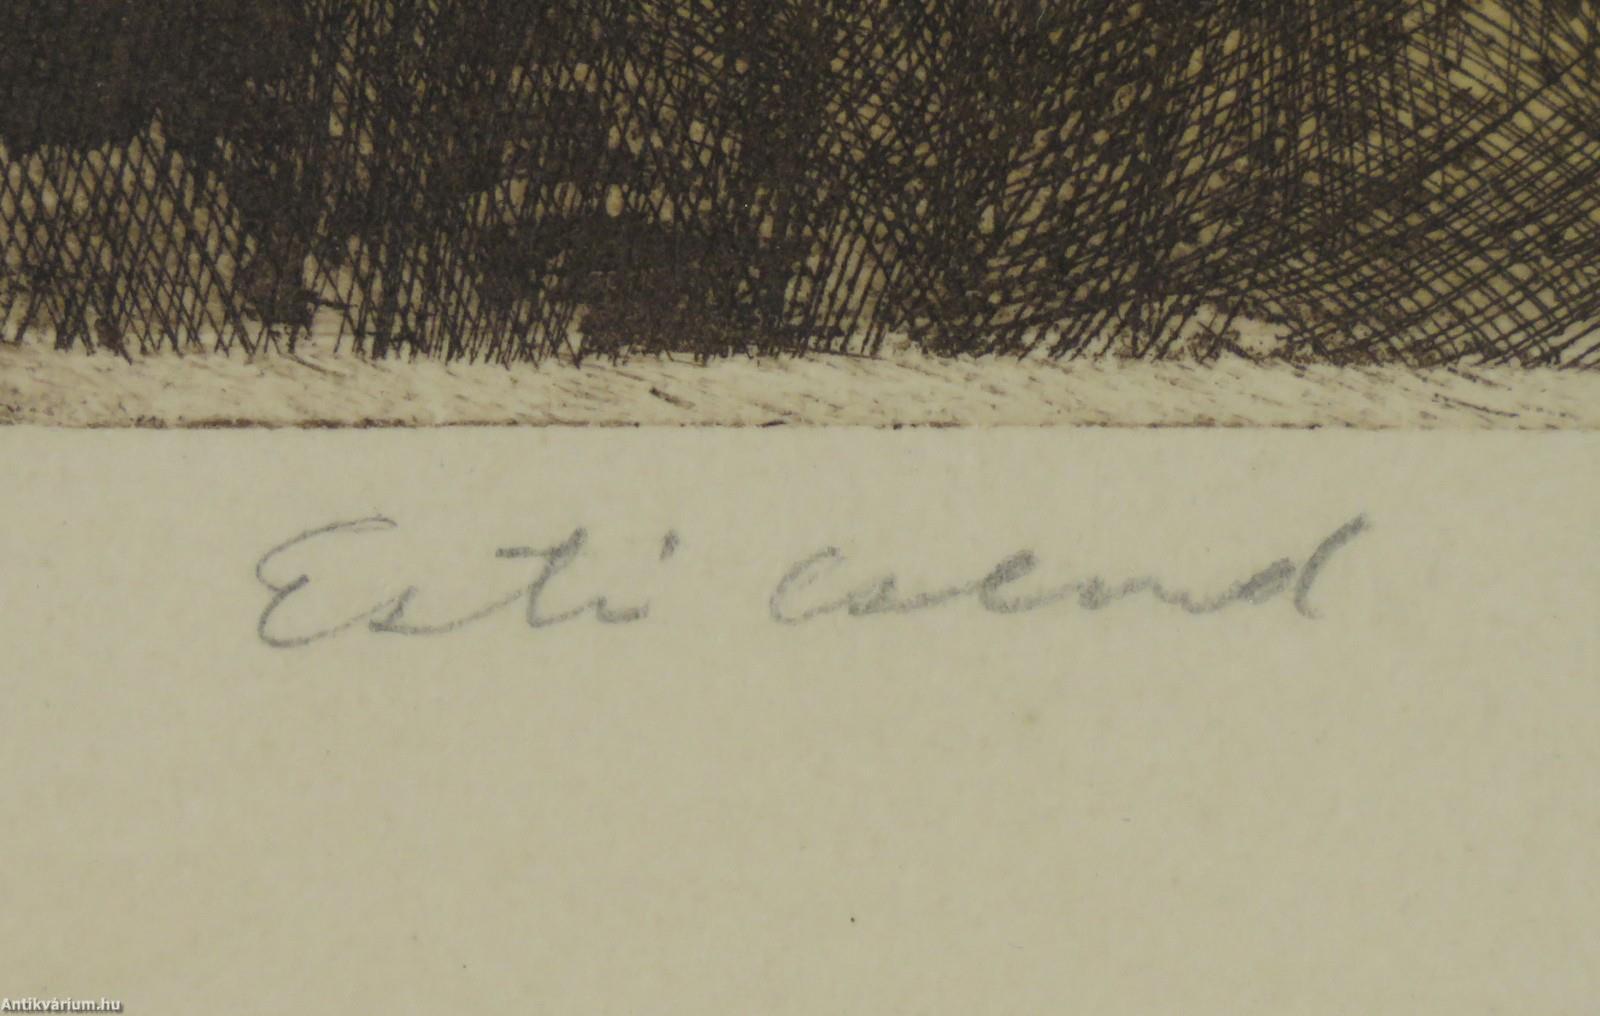 Esti csend
Antikvárium.hu